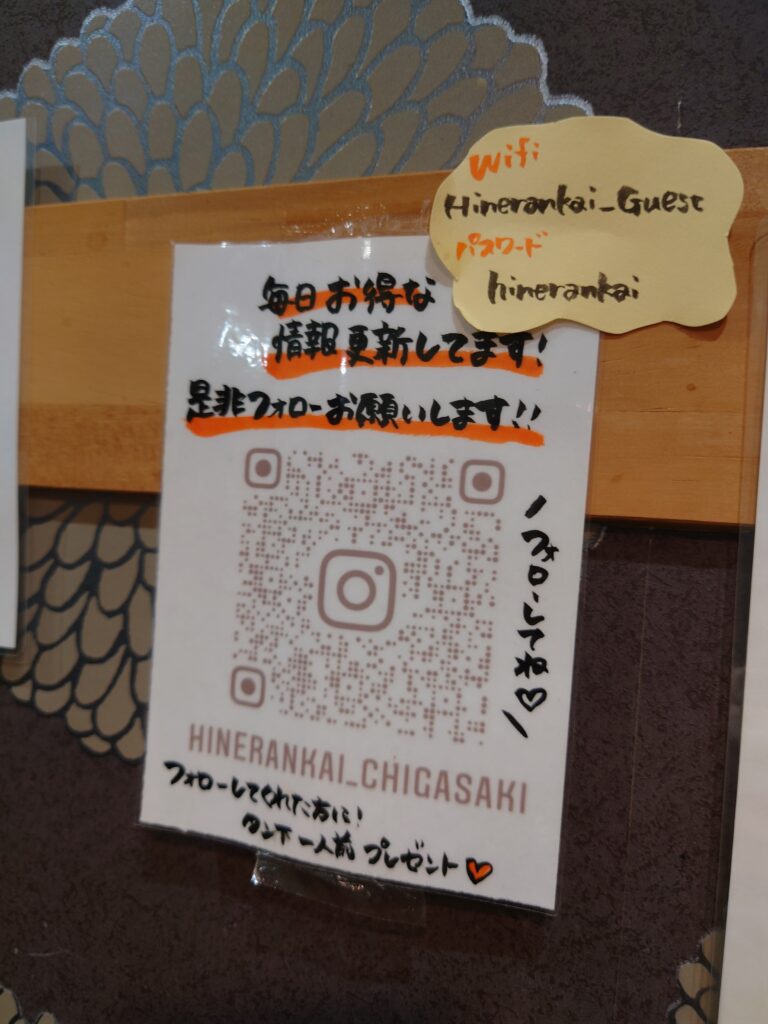 Wifi
Hinerankai_Guest
パスワード
hinerankai
毎日お得な
情報更新してます!
是非フォローお願いします!!
フォローしてね♡
HINERANKAI_CHIGASAKI
フォローしてくれた方に!
タン下一人前 プレゼント♥